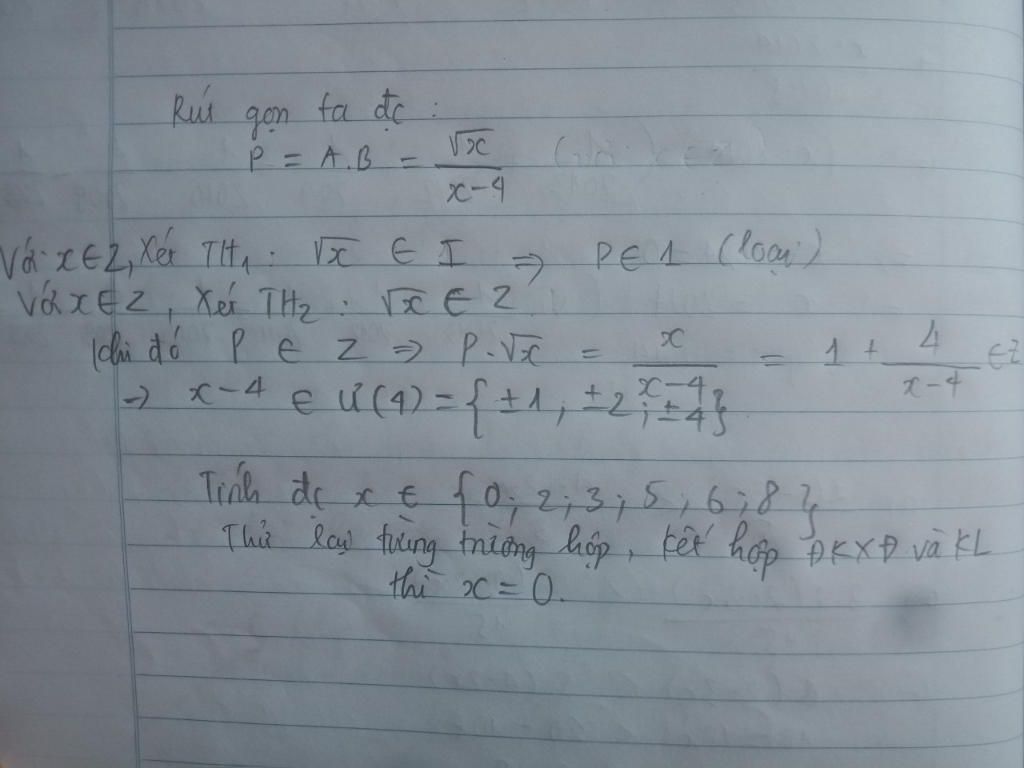 Rút gọn ta đc :
P = A.B = √x / x-4
Với x∈Z, Xét TH1 : √x ∈ I ⇒ P∈1 (loại)
Với x∈Z, Xét TH2 : √x ∈ Z
khi đó P ∈ Z ⇒ P.√x = x / x-4 = 1 + 4 / x-4 ∈ Z
→ x-4 ∈ Ư(4) = {±1 ; ±2 ; ±4}
Tính đc x ∈ {0 ; 2 ; 3 ; 5 ; 6 ; 8}
Thử lại từng trường hợp, kết hợp ĐKXĐ và KL
thì x = 0.